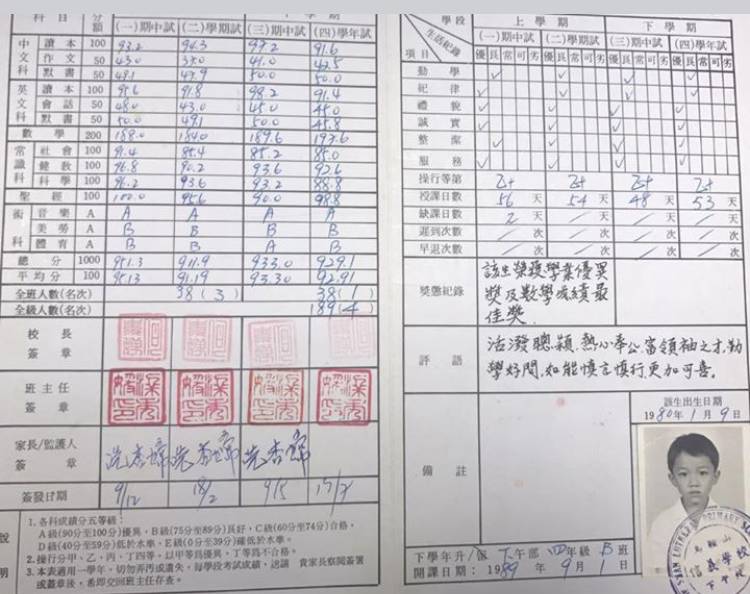 科目 分額 (一)期中試 (二)學期試 (三)期中試 (四)學年試
中文科 讀本 100 93.2 94.3 97.2 91.6
作文 50 43.0 35.0 41.0 42.5
默書 50 49.1 47.9 50.0 50.0
英文科 讀本 100 95.6 91.8 98.2 91.4
會話 50 48.0 43.0 45.0 45.0
默書 50 50.0 49.1 50.0 45.8
數學 200 188.0 184.0 189.6 197.6
常識科 社會 100 91.4 85.4 85.2 85.0
健教 100 96.8 90.2 93.6 92.6
科學 100 96.2 93.6 93.2 88.8
聖經 100 100.0 95.6 90.0 98.8
術科 音樂 A A A A A
美勞 A B B B B
體育 A B B A B
總分 1000 951.3 911.9 933.0 929.1
平均分 100 95.13 91.19 93.30 92.91
全班人數(名次) 38(3) 38(1)
全級人數(名次) 189(4)
校長簽章
班主任簽章
家長/監護人簽章
簽發日期 9/12 18/2 9/5
說明
1.各科成績分五等級:
A級(90分至100分)優異,B級(75分至89分)良好,C級(60分至74分)合格,
D級(40分至59分)低於水準,E級(0分至39分)確低於水準。
2.操行分甲、乙、丙、丁四等,以甲等為優異,丁等為不合格。
3.本表適用一學年,切勿弄污或遺失,每學段考試成績,送請 貴家長察閱簽署
或蓋章後,希即交回班主任存查。
學段 上學期 下學期
生活紀錄 (一)期中試 (二)學期試 (三)期中試 (四)學年試
項目 優良常可劣 優良常可劣 優良常可劣 優良常可劣
勤學
紀律
禮貌
誠實
整潔
服務
操行等第 乙+ 乙+ 乙+ 乙+
授課日數 56天 54天 48天 53天
缺課日數 2天 天 天 天
遲到次數 次 次 次 次
早退次數 次 次 次 次
獎懲紀錄
該生榮獲學業優異
獎及數學成績最
佳獎.
評語
活潑聰穎.熱心奉公.富領袖之才.勤
學好問.如能慎言慎行.更加可喜.
備註
該生出生日期
1980年1月9日
下學年升/留 下午部四年級B班
開課日期:1989年9月1日